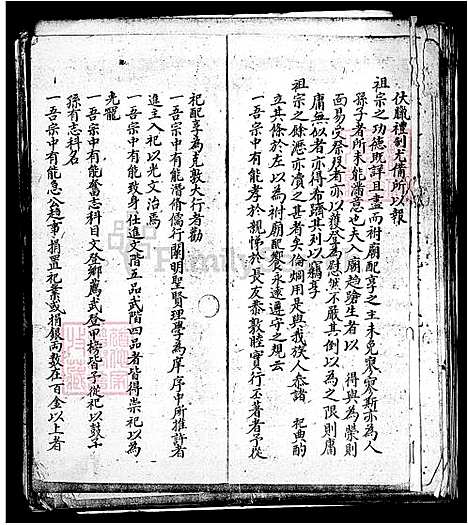 伏臘禮制尤備所以報
祖宗之功德既詳且盡而祔廟配享之主未免寥寥斯亦為人
孫子者所未能滿意也夫入廟趨蹌生者以 得與為榮則
面易受祭歿者亦以獲登為慰然不嚴其例以為之限則庸
庸無似者亦得布踞其列以竊享
祖宗之餘瀝亦瀆之甚者矣倫炯用是與我族人恭諸 祀典酌
立其條於左以為祔廟配饗永遠遵守之規云
一吾宗中有能孝於親悌於長友恭敦睦實行丕著者予從
祀配享為克敦大行者勸
一吾宗中有能潛脩儒行闡明聖賢理學為庠序中所推許者
進主入祀以光文治焉
一吾宗中有能致身仕進文階五品武階四品者皆得崇祀以為
光寵
一吾宗中有能奮志科目文登鄉薦武登甲榜皆予從祀以鼓子
孫有志科名
一吾宗中有能急公趨事捐置祀業或捐銀両数在百金以上者